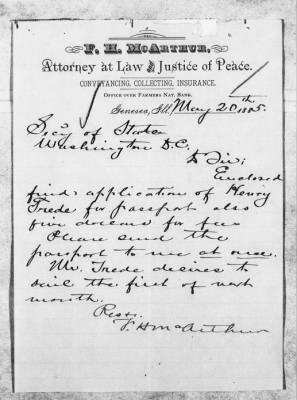 F. H. McARTHUR,
Attorney at Law and Justice of Peace.
CONVEYANCING, COLLECTING, INSURANCE.
OFFICE OVER FARMERS NAT. BANK.
Geneseo, Ill. May 20th 1885.
Secy of State
Washington D.C.
Dr Sir;
Enclosed
find application of Henry
Trede for passport also
five dollars for fee
Please send the
passport to me at once.
Mr. Trede desires to
sail the first of next
month.
Resp.
F. H. McArthur